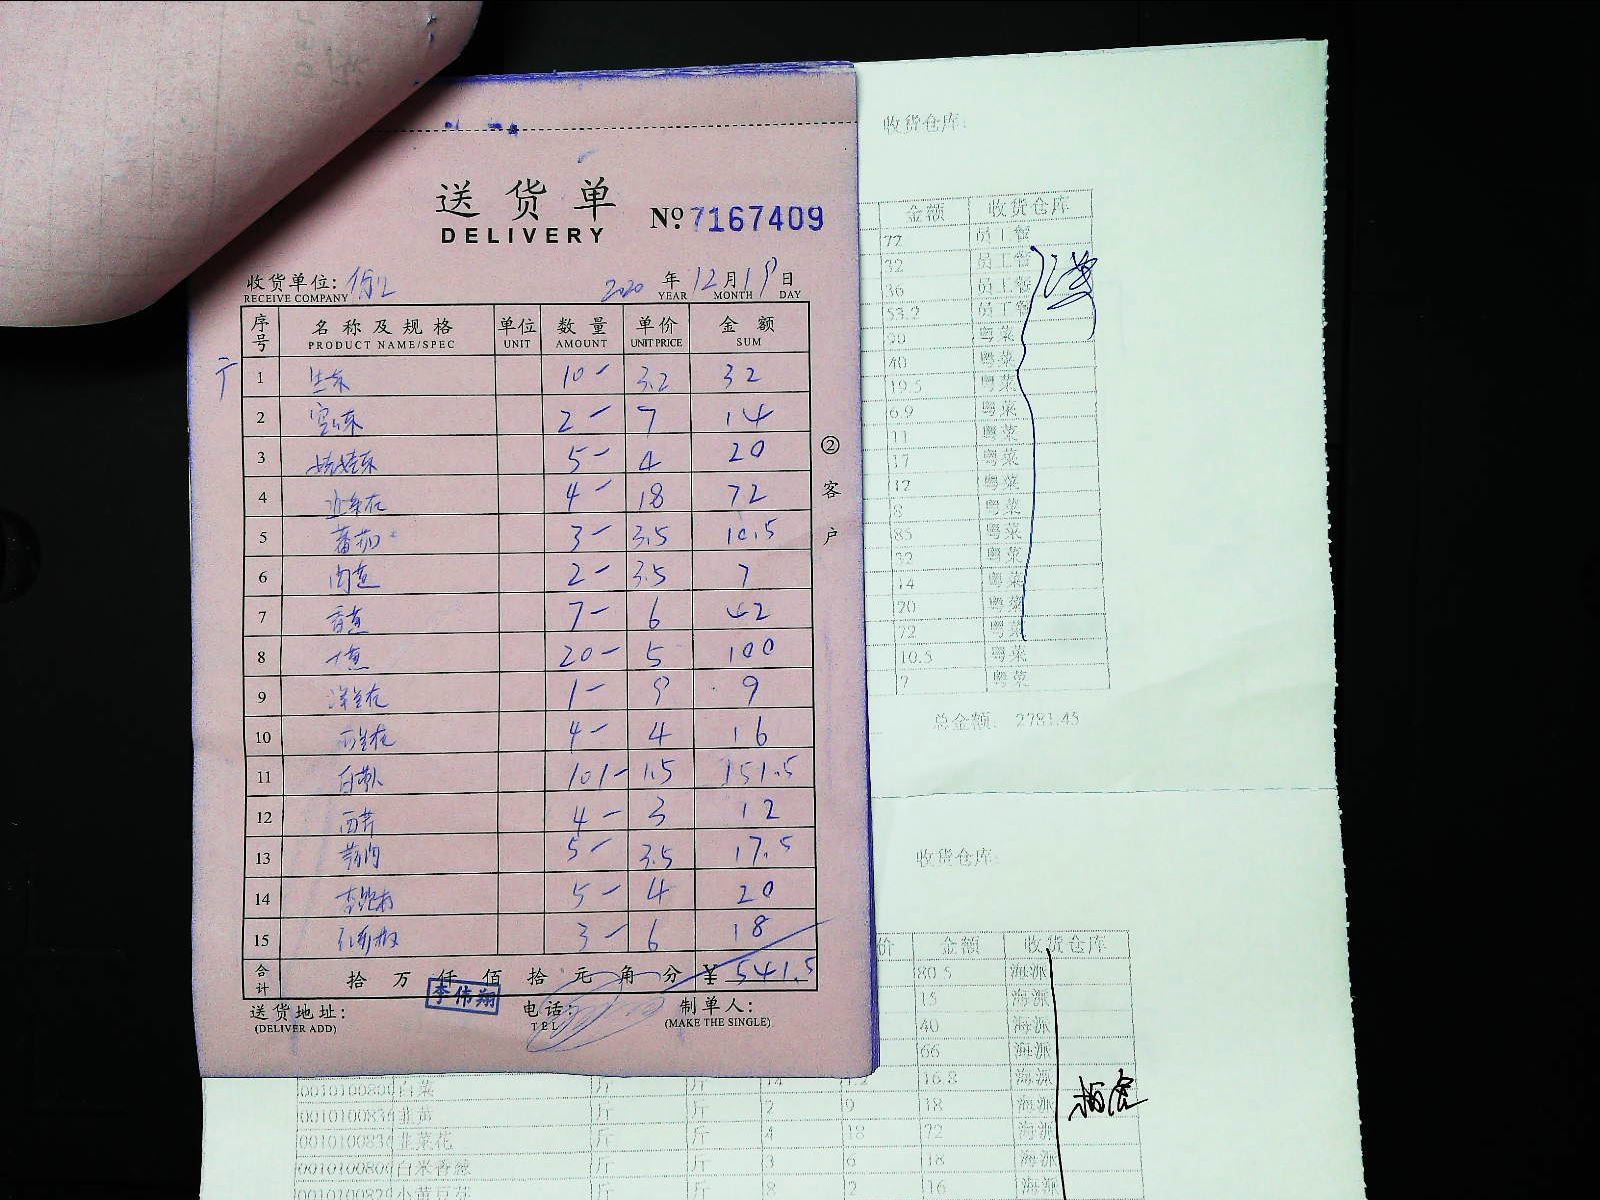 送货单
DELIVERY
No 7167409
收货单位:
RECEIVE COMPANY
2020 年 12 月 19 日
YEAR MONTH DAY
序号 名称及规格 单位 数量 单价 金额
PRODUCT NAME/SPEC UNIT AMOUNT UNIT PRICE SUM
1 生菜 10- 3.2 32
2 2- 7 14
3 娃娃菜 5- 4 20
4 韭菜花 4- 18 72
5 蕃茄 3- 3.5 10.5
6 2- 3.5 7
7 7- 6 42
8 20- 5 100
9 1- 9 9
10 西兰花 4- 4 16
11 101- 1.5 151.5
12 西芹 4- 3 12
13 5- 3.5 17.5
14 5- 4 20
15 3- 6 18
合计 拾 万 仟 佰 拾 元 角 分 ¥ 541.5
李伟翔
送货地址: 电话: 制单人:
(DELIVER ADD) TEL (MAKE THE SINGLE)
② 客户
收货仓库:
金额 收货仓库
72 员工餐
32 员工餐
36 员工餐
53.2 员工餐
90 粤菜
40 粤菜
19.5 粤菜
6.9 粤菜
11 粤菜
17 粤菜
12 粤菜
8 粤菜
85 粤菜
32 粤菜
14 粤菜
20 粤菜
72 粤菜
10.5 粤菜
7 粤菜
总金额: 2781.45
收货仓库:
价 金额 收货仓库
80.5 海派
15 海派
40 海派
66 海派
白菜 斤 斤 14 1.2 16.8 海派
斤 斤 2 9 18 海派
韭菜花 斤 斤 4 18 72 海派
斤 斤 3 6 18 海派
小黄豆芽 斤 斤 8 2 16 海派